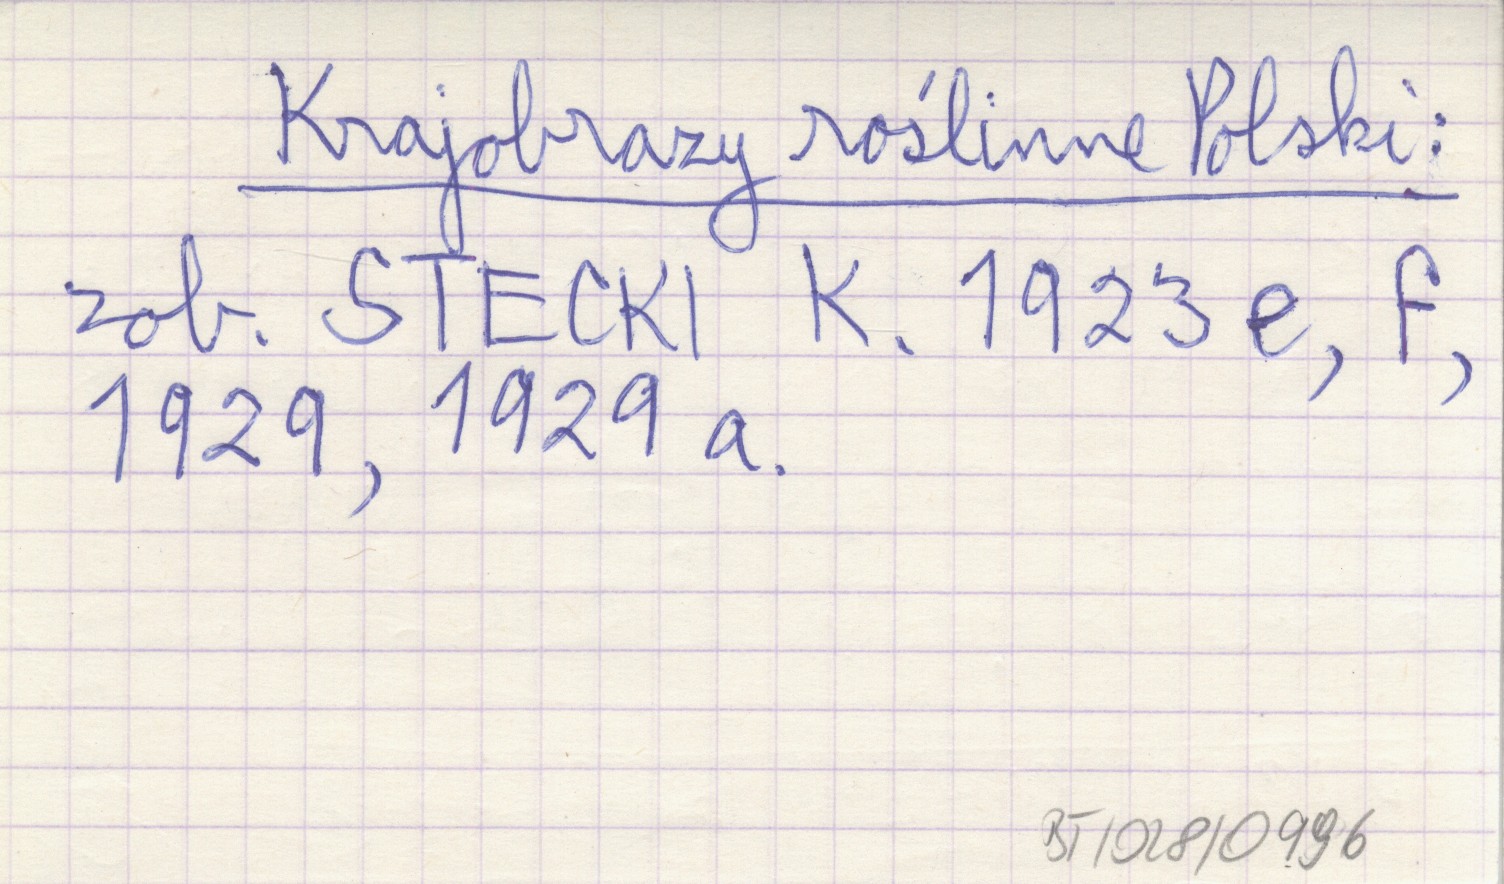 Krajobrazy roślinne Polski:
zob. STECKI K. 1923 e, f,
1929, 1929 a.
BT/028/0996